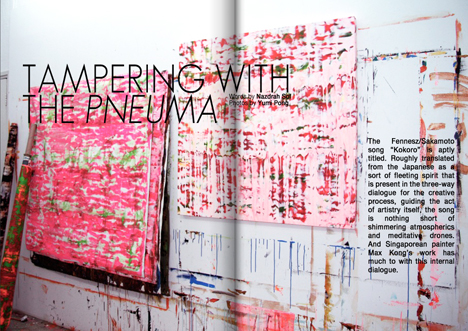 TAMPERING WITH
THE PNEUMA
Words by Nazdrah
Photos by Yumi Pong
The Fennesz/Sakamoto
song "Kokoro" is aptly
titled. Roughly translated
from the Japanese as a
sort of fleeting spirit that
is present in the three-way
dialogue for the creative
process, guiding the act
of artistry itself, the song
is nothing short of
shimmering atmospherics
and meditative drones.
And Singaporean painter
Max Kong's work has
much to with this internal
dialogue.